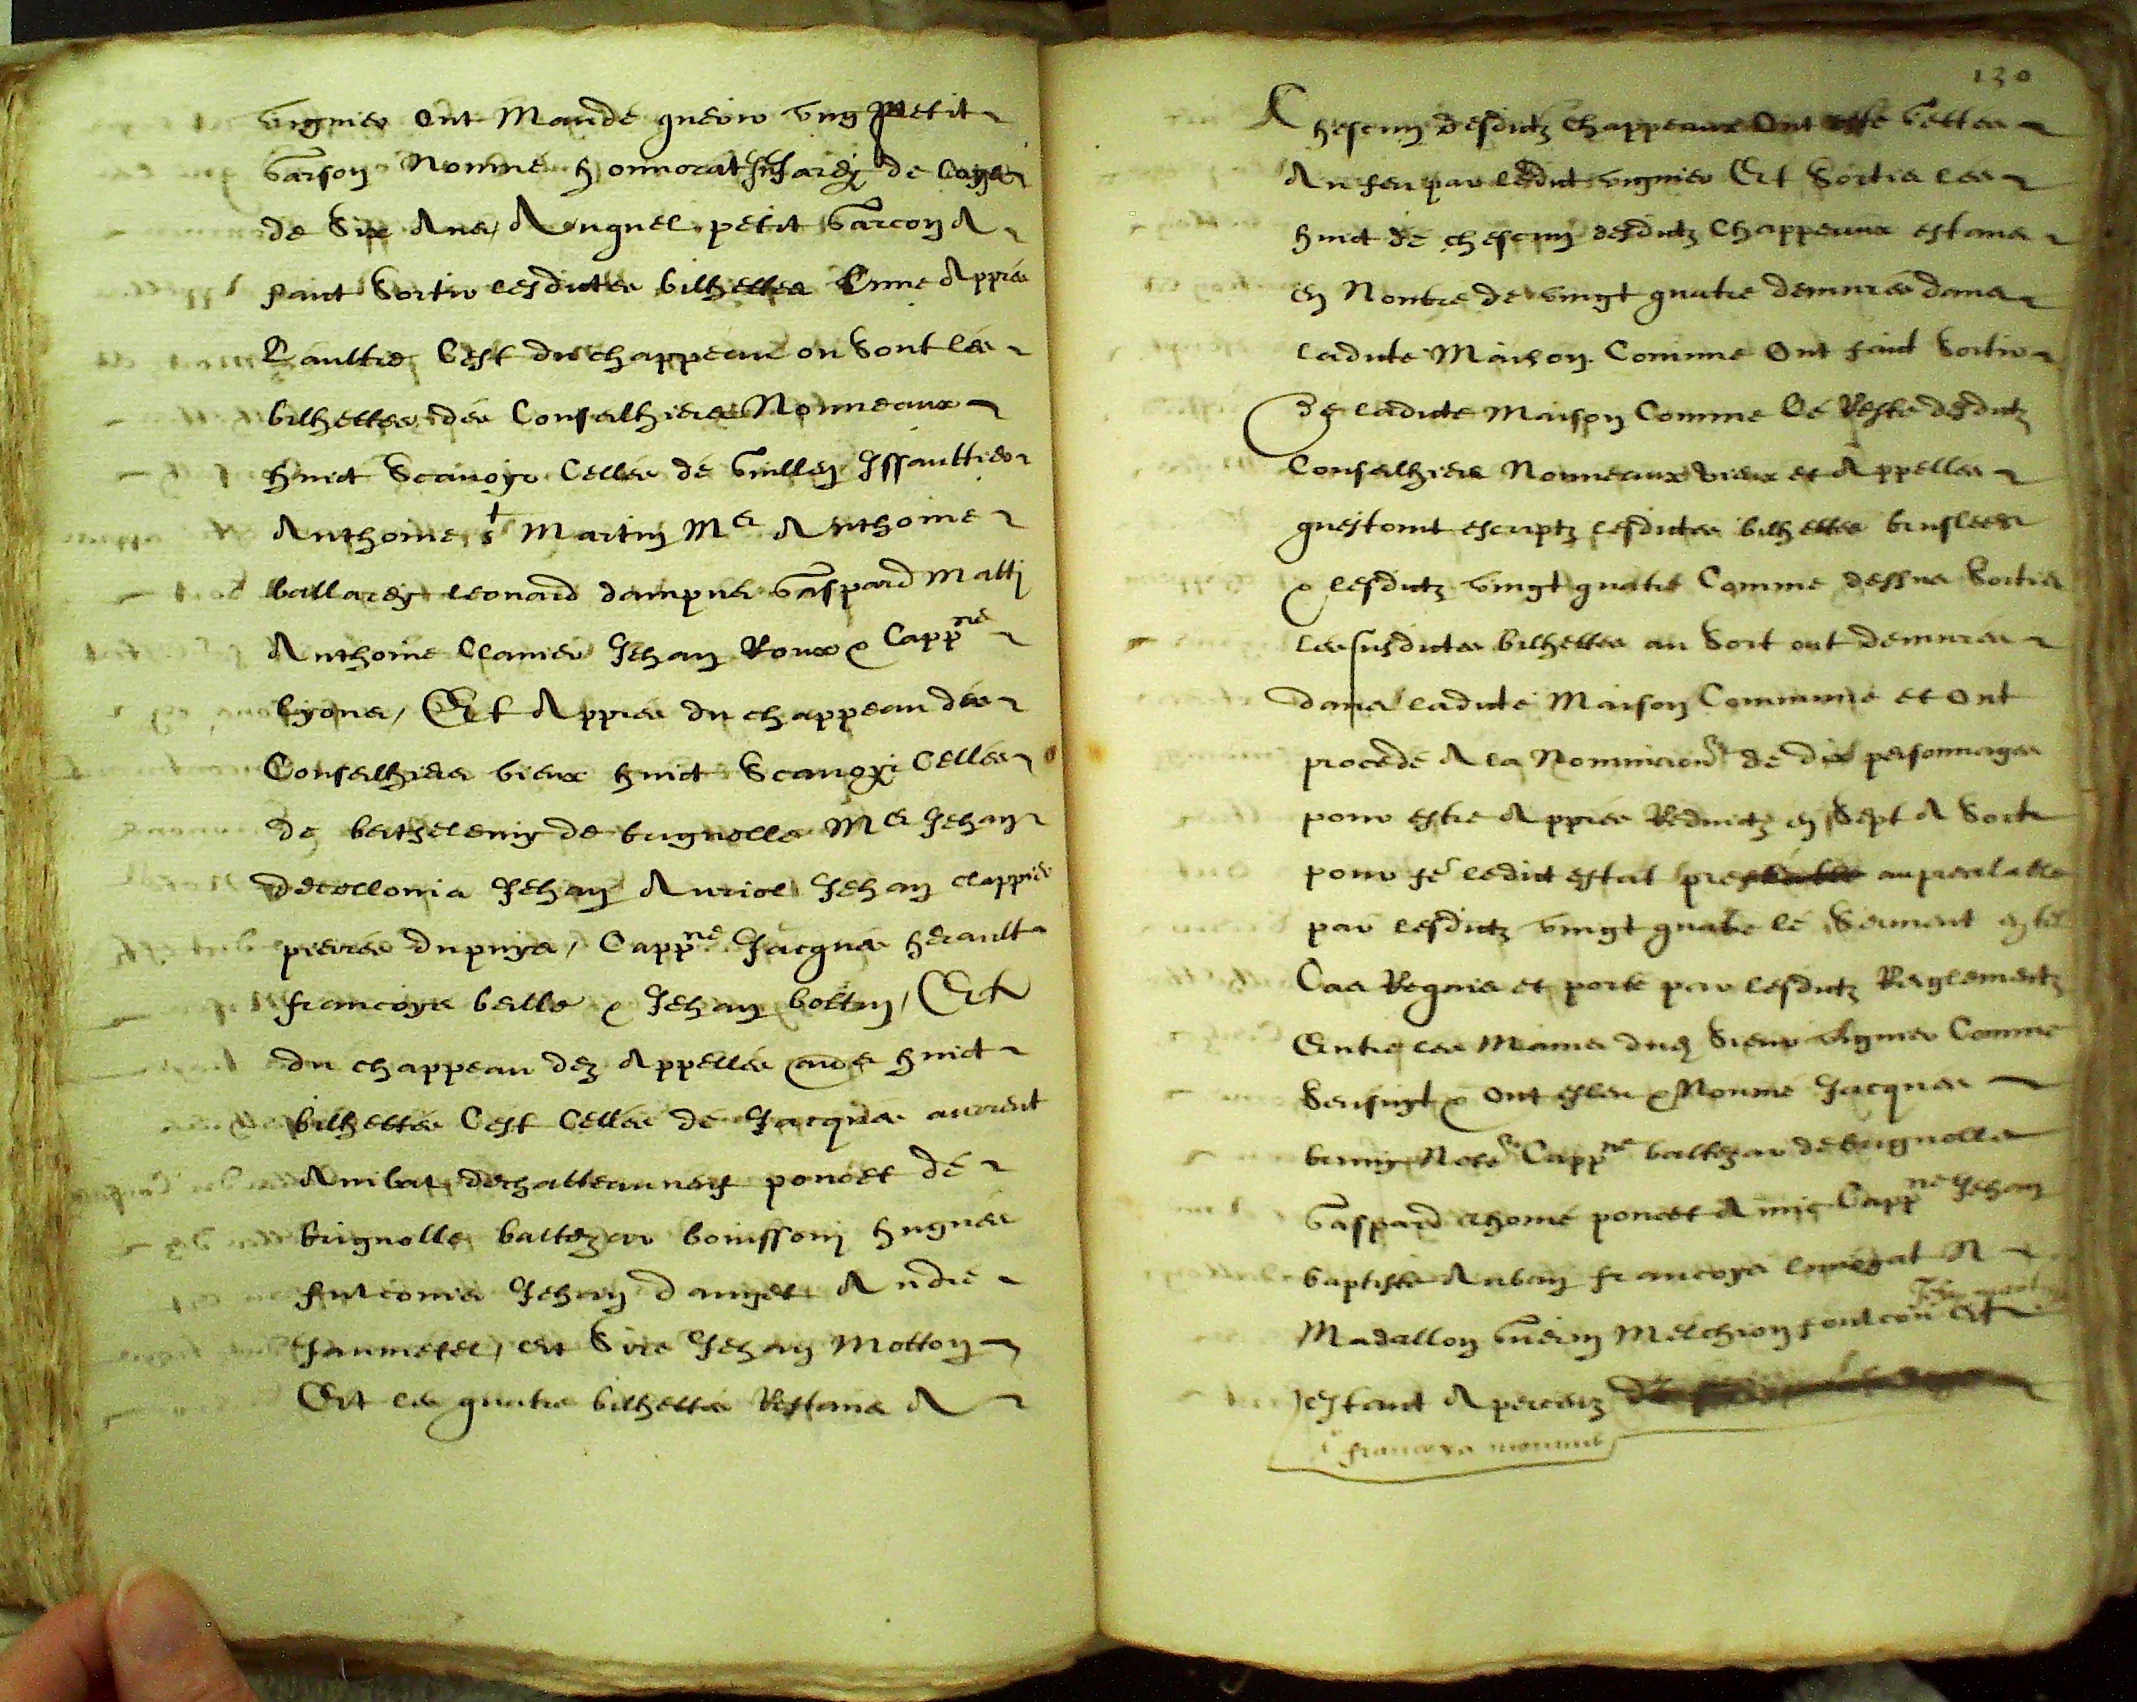 viguier ont mandé querir ung petit
garson nommé honnorat de l'aige
de six ans, Auquel petit garcon a
faict sortir lesdictes bilhettes l'une appres
l'aultre c'est du chappeau ou sont les
bilhettes des conselhiers nouveaux
huict scavoyr celles de guillen Issaultier
Anthoine st martin Me Anthoine
ballardy leonard dampus gaspard matti
Anthoine clamer Jehan Roux & cappne
lyons, Et appres du chappeau des
conselhiers vieux huict scavoyr celles
de berthelemy de brignolle Me Jehan
decollonia Jehan Auriol Jehan clappier
pierres dupuys, cappne Jacques herault
francoys beille & Jehan boltin, Et
du chappeau dez appelles aues huict
bilhettes c'est celles de Jacques aurent
Anibal dechatteauneuf poncet de
brignolle baltezar bouissony hugues
fulconis Jehan dauyet Andre
Jaumetel, et sire Jehan motton
Et les quatre bilhettes restans a
130
Chescun desdictz chappeaux ont este gettes
au feu par ledict viguier Et sortis les
huict de chescun desdictz chappeaux estans
en nonbre de vingt quatre demures dans
ladicte maison comune ont faict sortir
de ladicte maison comme le reste desdictz
conselhiers nouveaux vieux et appelles
questoint escriptz lesdictes bilhettes bruslees
& lesdictz vingt quatre comme dessus sortis
les susdictes bilhettes au sort ont demures
dans ladicte maison commune et ont
procede a la nominaon de dix personnages
pour estre appres reduictz en sept a sort
pour fe ledict estat au prealable
par lesdictz vingt quatre le serment en tel
cas requis et porté par lesdictz reiglementz
entre les mains dud sieur viguier comme
sensuyt & ont esleu & nommé Jacques
bruny notre cappne baltezar de brignolle
gaspard rhome poncet amic cappne Jehan
baptiste Auban francoys A
madallon guerin melchion foulcou et
estant a percarz
francoys